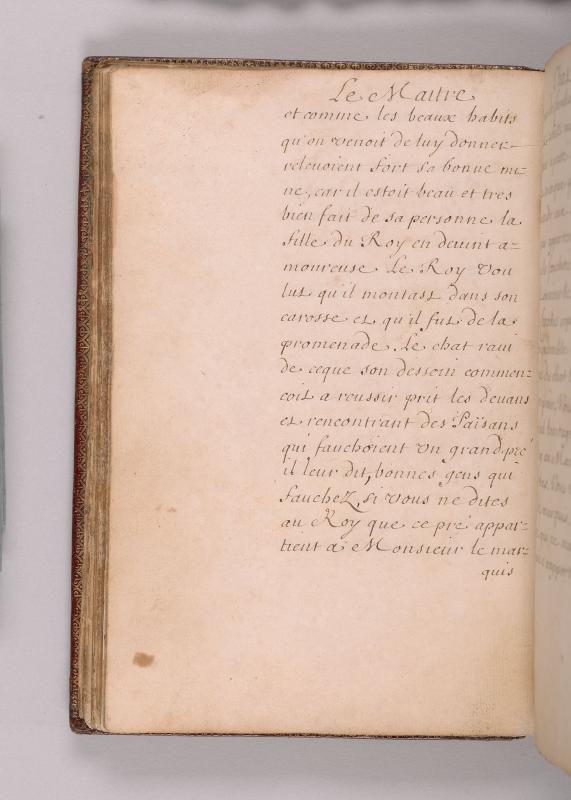 Le Maitre
et comme les beaux habits
qu'on venoit de luy donner
relevoient fort sa bonne mi=
ne, car il estoit beau et tres
bien fait de sa personne la
fille du Roy en devint a=
moureuse Le Roy vou
lut qu'il montast dans son
carosse et qu'il fut de la
promenade. Le chat ravi
de ceque son dessein commen=
coit a reussir prit les devans
et rencontrant des Païsans
qui fauchoient un grand pré
il leur dit, bonnes gens qui
fauchez, si vous ne dites
au Roy que ce pré appar=
tient a Monsieur le mar=
quis